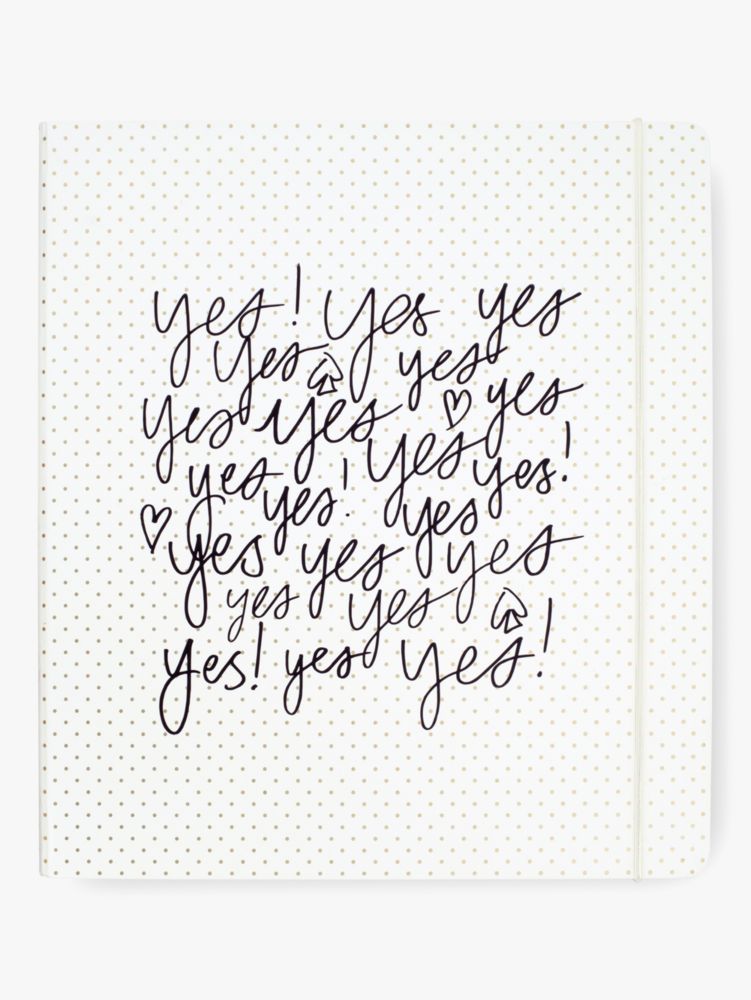 yes! yes yes
yes yes
yes yes yes
yes yes! yes yes!
yes yes yes yes
yes yes
yes! yes yes!